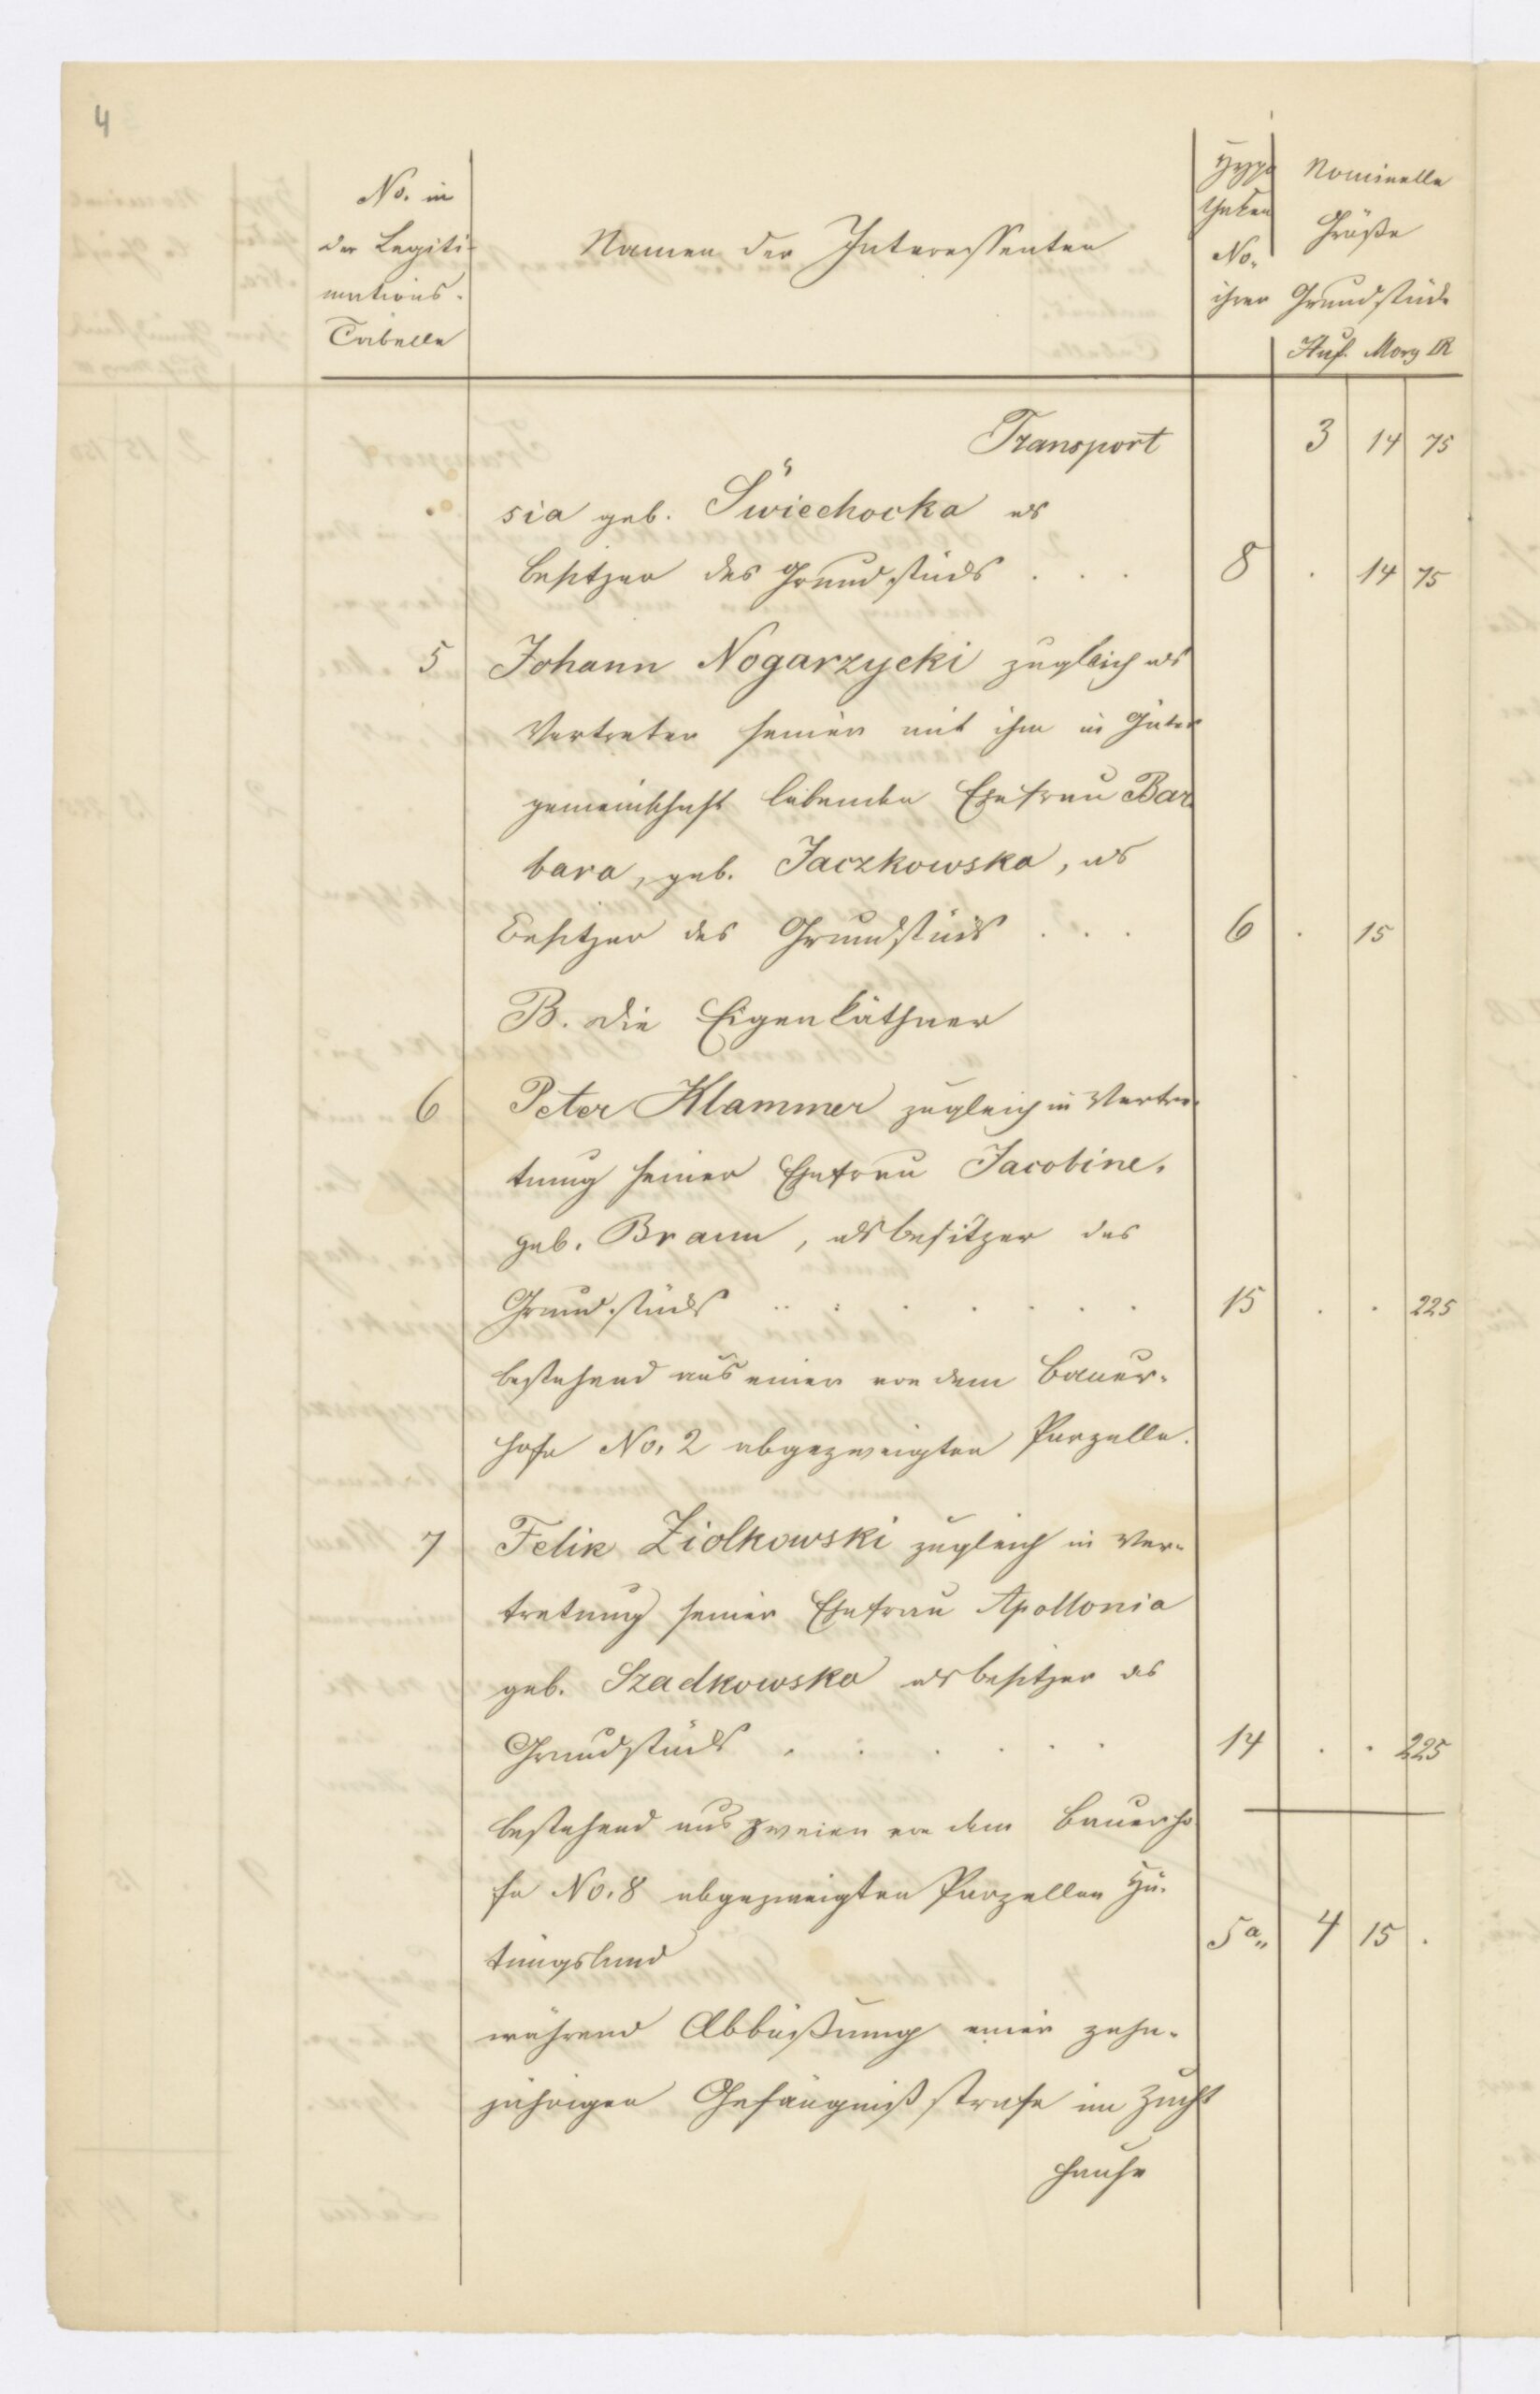 4
No. in
der Legiti-
mations-
Tabelle
Namen der Interessenten
Hypo
theken
No.
ihrer
Nominelle
Größe
Grundstücke
Huf. Morg □R
Transport 3 14 75
sia geb. Świechocka als
Besitzer des Grundstücks . . . 8 . 14 75
5 Johann Nogarzycki zugleich als
Vertreter seiner mit ihm in Güter
gemeinschaft lebenden Ehefrau Bar
bara, geb. Jaczkowska, als
Besitzer des Grundstücks . . . 6 . 15
B. Die Eigenkäthner
6 Peter Klammer zugleich in Vertre-
tung seiner Ehefrau Jacobine,
geb. Braun, als Besitzer des
Grundstücks . . . . . . . 15 . . 225
bestehend aus einer von dem Bauer-
hofe No. 2 abgezweigten Parzelle.
7 Felix Ziolkowski zugleich in Ver-
tretung seiner Ehefrau Apollonia
geb. Szadkowska als Besitzer des
Grundstücks . . . . . . 14 . . 225
bestehend aus zweien von dem Bauerho
fe No. 8 abgezweigten Parzellen Hü-
tungsland 5a„ 4 15 .
während Abbüßung einer zehn-
jährigen Gefängnißstrafe im Zucht
hause